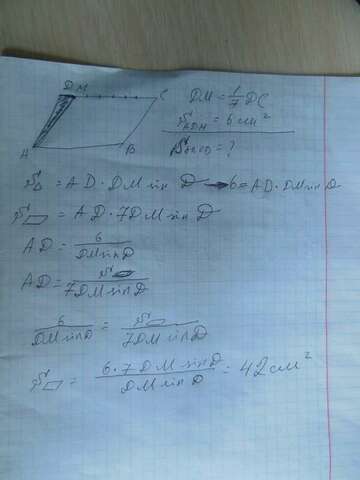 D M C
DM = 1/7 DC
S ADM = 6 см²
A B
S ABCD = ?
S△ = AD · DM sin D → 6 = AD · DM sin D
S▱ = AD · 7DM sin D
AD = 6 / DM sin D
AD = S▱ / 7DM sin D
6 / DM sin D = S▱ / 7DM sin D
S▱ = 6 · 7 DM sin D / DM sin D = 42 см²